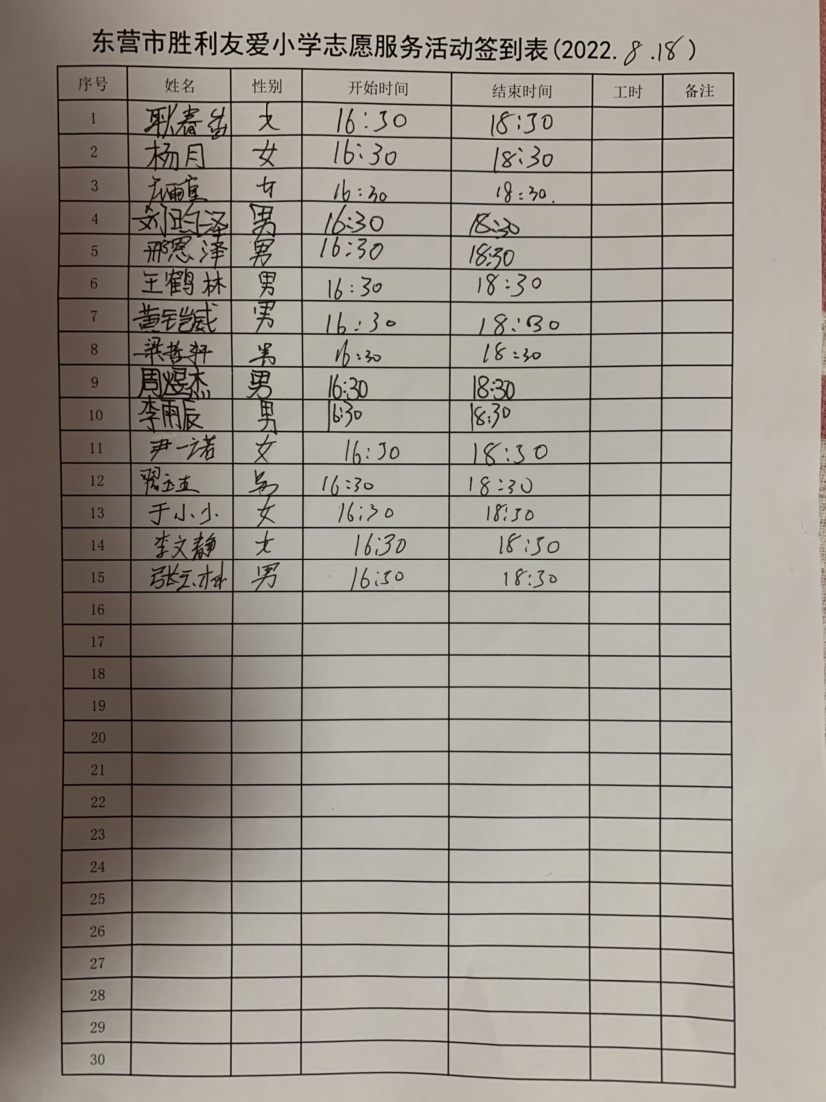 东营市胜利友爱小学志愿服务活动签到表(2022.8.18)
序号 姓名 性别 开始时间 结束时间 工时 备注
1 耿春 女 16:30 18:30
2 杨月 女 16:30 18:30
3 女 16:30 18:30.
4 刘昀泽 男 16:30 18:30
5 邢恩泽 男 16:30 18:30
6 王鹤林 男 16:30 18:30
7 黄钰皓威 男 16:30 18:30
8 梁哲轩 男 16:30 18:30
9 周煜杰 男 16:30 18:30
10 李雨辰 男 16:30 18:30
11 尹一诺 女 16:30 18:30
12 男 16:30 18:30
13 于小小 女 16:30 18:30
14 李文静 女 16:30 18:30
15 张云林 男 16:30 18:30
16
17
18
19
20
21
22
23
24
25
26
27
28
29
30